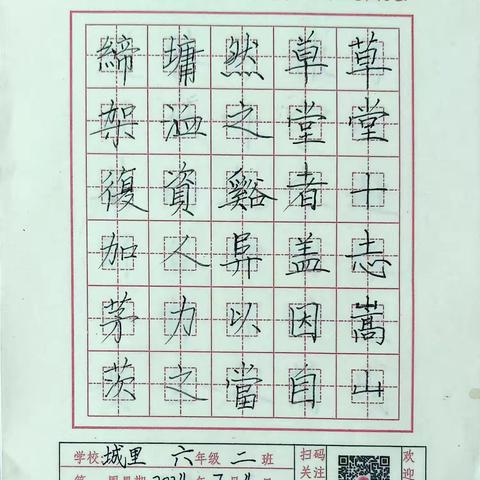 草堂十志嵩山
草堂者盖因自
然之谿阜以當
墉洫資人力之
締架復加茅茨
学校 城里 六年级 二班
扫码
关注
欢迎